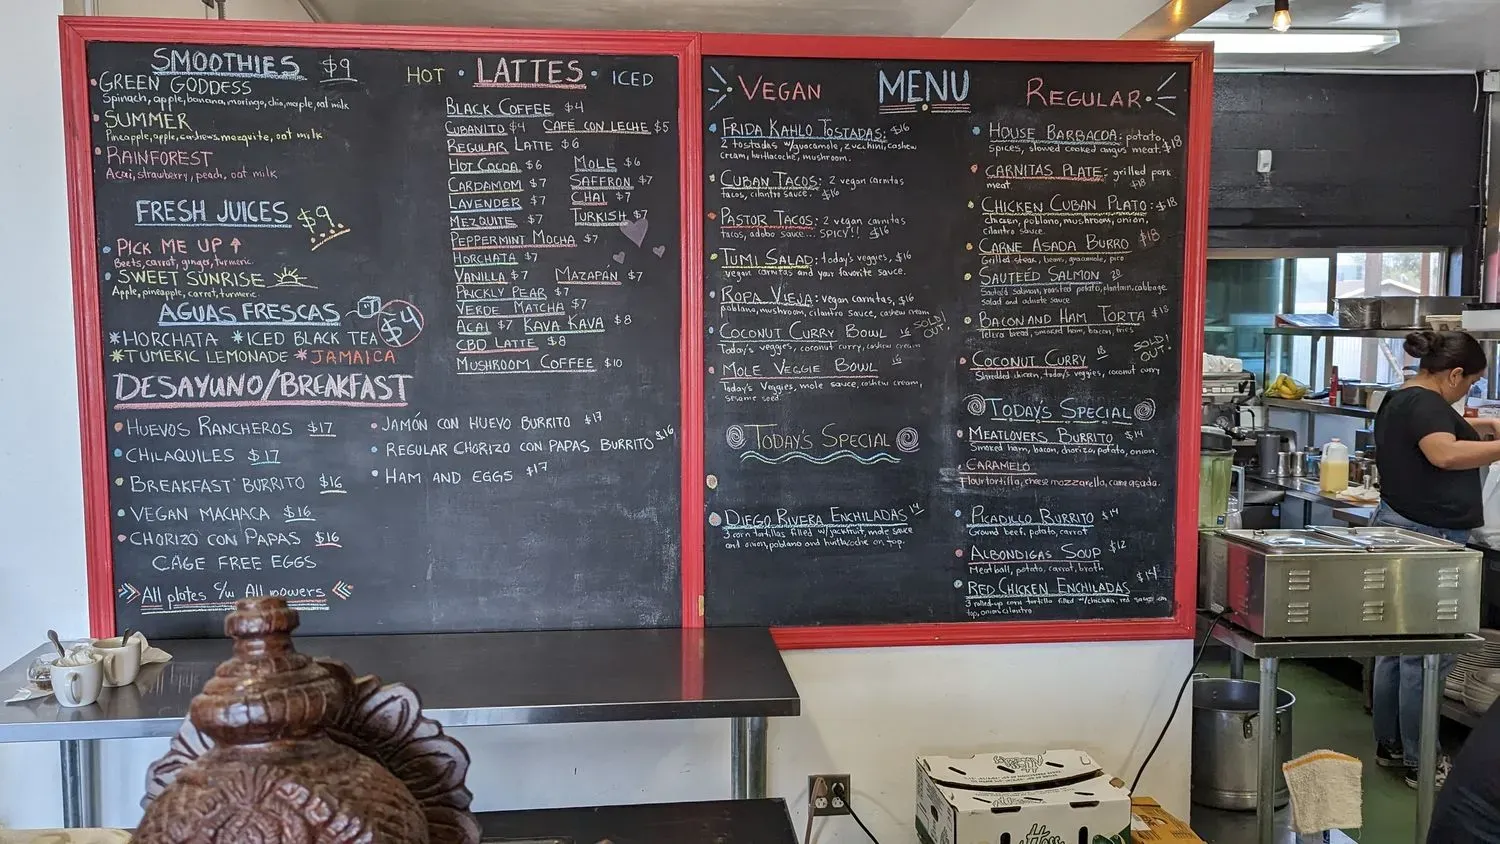 SMOOTHIES $9
GREEN GODDESS
Spinach, apple, banana, moringo, chia, maple, oat milk
SUMMER
Pineapple, apple, cashews, mezquite, oat milk
RAINFOREST
Acai, strawberry, peach, oat milk
FRESH JUICES $9
PICK ME UP
Beets, carrot, ginger, turmeric
SWEET SUNRISE
Apple, pineapple, carrot, turmeric
AGUAS FRESCAS $4
*HORCHATA *ICED BLACK TEA
*TUMERIC LEMONADE *JAMAICA
DESAYUNO/BREAKFAST
HUEVOS RANCHEROS $17
CHILAQUILES $17
BREAKFAST BURRITO $16
VEGAN MACHACA $16
CHORIZO CON PAPAS $16
CAGE FREE EGGS
All plates c/w All powers
JAMÓN CON HUEVO BURRITO $17
REGULAR CHORIZO CON PAPAS BURRITO $16
HAM AND EGGS $17
HOT • LATTES • ICED
BLACK COFFEE $4
CUBANITO $4 CAFÉ CON LECHE $5
REGULAR LATTE $6
HOT COCOA $6 MOLE $6
CARDAMOM $7 SAFFRON $7
LAVENDER $7 CHAI $7
MEZQUITE $7 TURKISH $7
PEPPERMINT MOCHA $7
HORCHATA $7
VANILLA $7 MAZAPÁN $7
PRICKLY PEAR $7
VERDE MATCHA $7
ACAI $7 KAVA KAVA $8
CBD LATTE $8
MUSHROOM COFFEE $10
VEGAN MENU REGULAR
FRIDA KAHLO TOSTADAS: $16
2 tostadas w/guacamole, zucchini, cashew
cream, huitlacoche, mushroom.
CUBAN TACOS: 2 vegan carnitas
tacos, cilantro sauce. $16
PASTOR TACOS: 2 vegan carnitas
tacos, adobo sauce... SPICY!! $16
TUMI SALAD: today's veggies, $16
vegan carnitas and your favorite sauce.
ROPA VIEJA: vegan carnitas, $16
poblano, mushroom, cilantro sauce, cashew cream
COCONUT CURRY BOWL 16 SOLD OUT
Today's veggies, coconut curry, cashew cream
MOLE VEGGIE BOWL 16
Today's Veggies, mole sauce, cashew cream,
sesame seed.
TODAY'S SPECIAL
DIEGO RIVERA ENCHILADAS 14
3 corn tortillas filled w/jackfruit, mole sauce
and onion, poblano and huitlacoche on top.
HOUSE BARBACOA: potato,
spices, slowed cooked angus meat. $18
CARNITAS PLATE: grilled pork
meat. $18
CHICKEN CUBAN PLATO: $18
chicken, poblano, mushroom, onion,
cilantro sauce.
CARNE ASADA BURRO $18
Grilled steak, beans, guacamole, pico
SAUTEÉD SALMON 20
Sauteéd salmon, roasted potato, plantain, cabbage
salad and
BACON AND HAM TORTA $18
Telera bread, smoked ham, bacon, fries
COCONUT CURRY 18 SOLD! OUT
Shredded chicken, today's veggies, coconut curry
TODAY'S SPECIAL
MEATLOVERS BURRITO $14
Smoked ham, bacon, chorizo, potato, onion.
CARAMELO
Flour tortilla, cheese mozzarella, carne asada.
PICADILLO BURRITO $14
Ground beef, potato, carrot
ALBONDIGAS SOUP $12
Meatball, potato, carrot, broth
RED CHICKEN ENCHILADAS $14
3 rolled up corn tortilla filled w/chicken, red sauce on
top, onion, cilantro